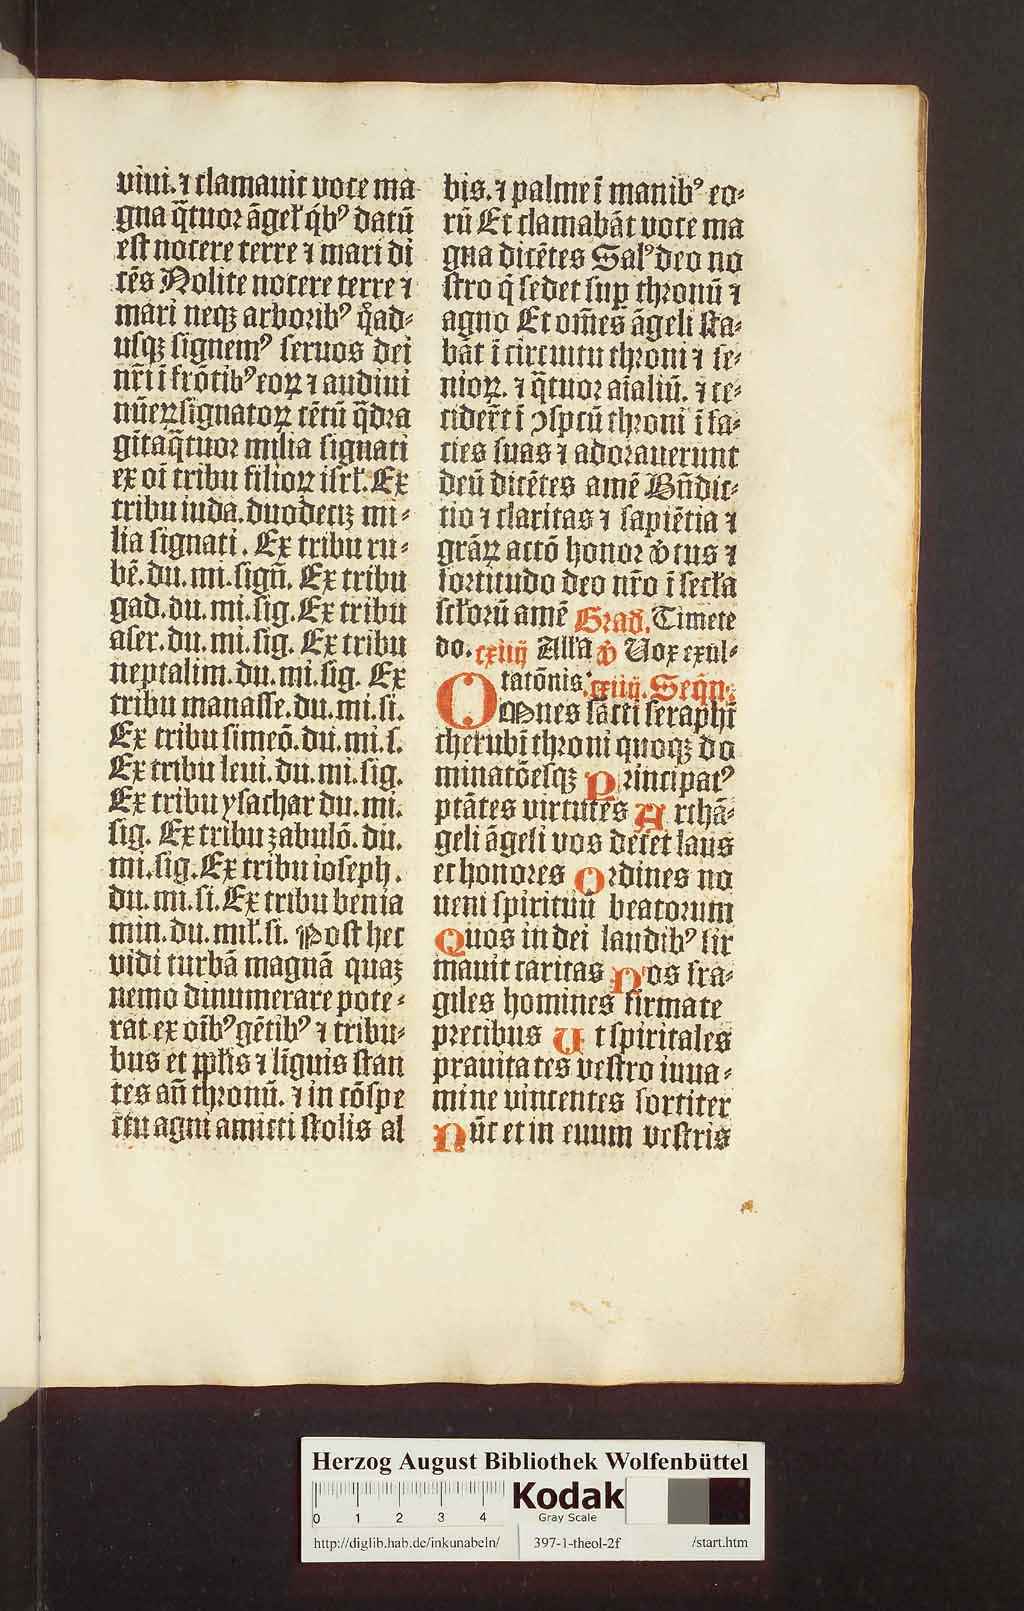 viui. ⁊ clamauit voce ma
gna q̄tuor āgeł q́bꝰ datū
est nocere terre ⁊ mari di
cēs Nolite nocere terre ⁊
mari neqꝫ arboribꝰ q̊ad⸗
usqꝫ signemꝰ seruos dei
nr̄i ī frōtibꝰ eoꝝ ⁊ audiui
nūeꝝ signatoꝝ cētū q̄dra
gīta q̄tuor milia signati
ex oī tribu filioꝝ isrł. Ex
tribu iuda. duodeciꝫ mi⸗
lia signati. Ex tribu ru⸗
bē. du. mi. sign̄. Ex tribu
gad. du. mi. sig. Ex tribu
aser. du. mi. sig. Ex tribu
neptalim. du. mi. sig. Ex
tribu manasse. du. mi. si.
Ex tribu simeō. du. mi. s.
Ex tribu leui. du. mi. sig.
Ex tribu ysachar du. mi.
sig. Ex tribu zabulō. du.
mi. sig. Ex tribu ioseph.
du. mi. si. Ex tribu benia
min. du. mił. si. Post hec
vidi turbā magnā quaꝫ
nemo dinumerare pote⸗
rat ex oībꝰ gētibꝰ ⁊ tribu⸗
bus et pplīs ⁊ līguis stan
tes an̄ thronū. ⁊ in cōspe
ctu agni amicti stolis al
bis. ⁊ palme ī manibꝰ eo⸗
rū Et clamabāt voce ma
gna dicētes Salꝰ deo no
stro q̄ sedet suꝑ thronū ⁊
agno Et om̄es āgeli sta⸗
bāt ī circuitu throni ⁊ se⸗
nioꝝ. ⁊ q̄tuor aīaliū. ⁊ ce⸗
cider̄t ī ɔspcū throni ī fa⸗
cies suas ⁊ adorauerunt
deū dicētes amē Bn̄dic⸗
tio ⁊ claritas ⁊ sapiētia ⁊
grāꝝ actō honor v̓tus ⁊
fortitudo deo nr̄o ī secła
scłorū amē Grad. Timete
do. cxiiij Ałła v̓ Vox exul⸗
tatōnis. cxiiij. Seq̄n.
OMnes sācti seraphī
cherubī throni quoqꝫ do
minatōesqꝫ Principatꝰ
ptātes virtutes Archā⸗
geli āgeli vos decet laus
et honores Ordines no
uem spirituū beatorum
Quos in dei laudibꝰ fir
mauit caritas Nos fra⸗
giles homines firmate
precibus Ut spiritales
prauitates vestro iuua⸗
mine vincentes fortiter
Nūc et in euum vestris
Herzog August Bibliothek Wolfenbüttel
0 1 2 3 4
Kodak
Gray Scale
http://diglib.hab.de/inkunabeln/ 397-1-theol-2f /start.htm